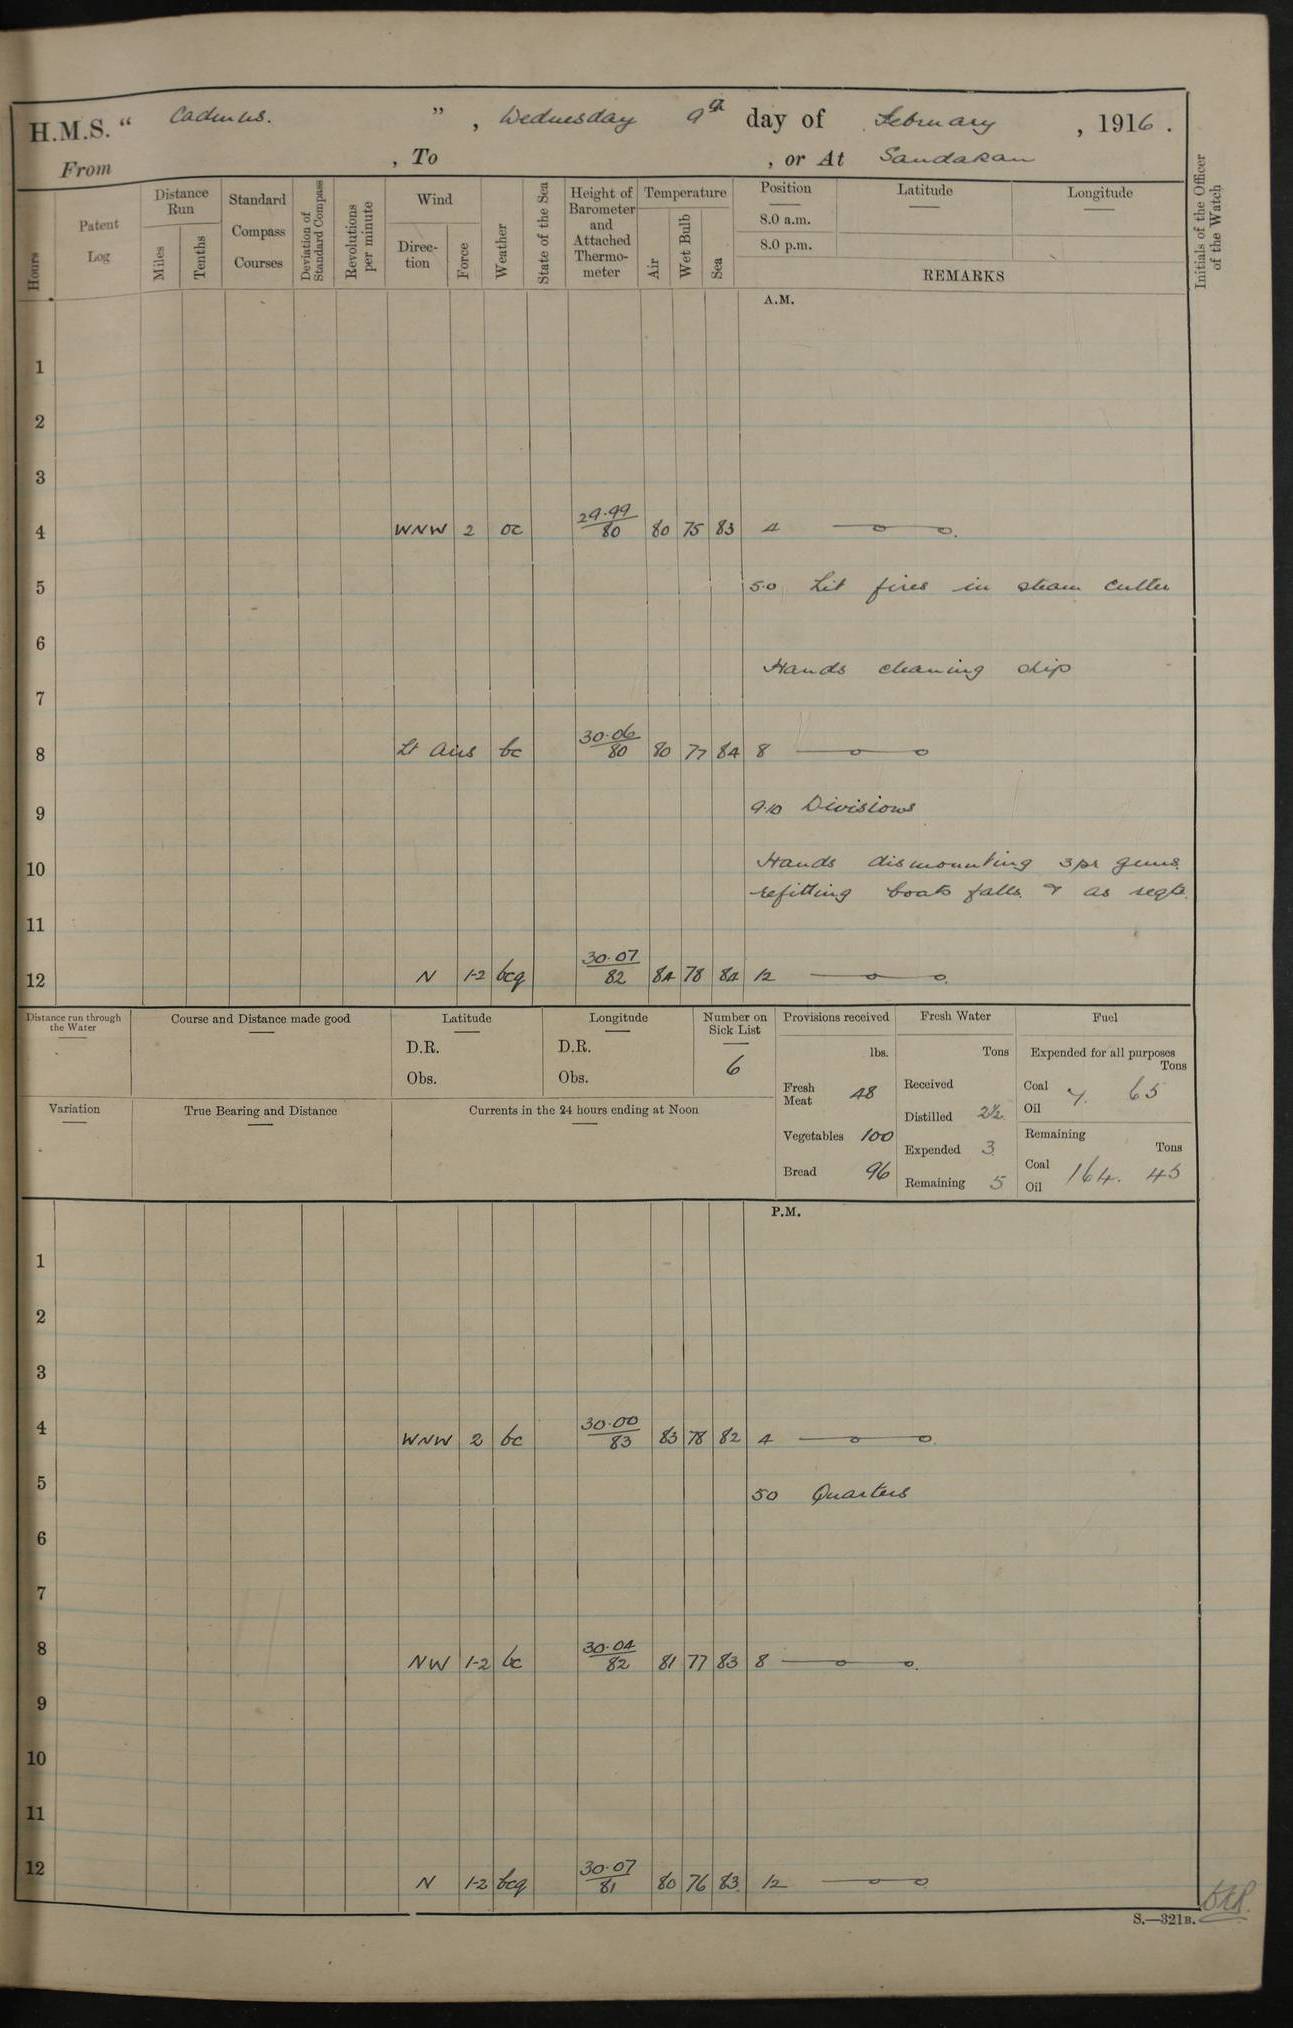 H.M.S. " Cadmus. ", Wednesday 9th day of February, 1916.
From , To , or At Sandakan
Hours
Patent Log
Distance Run
Miles
Tenths
Standard Compass Courses
Deviation of Standard Compass
Revolutions per minute
Wind
Direc-tion
Force
Weather
State of the Sea
Height of Barometer and Attached Thermo-meter
Temperature
Air
Wet Bulb
Sea
Position
8.0 a.m.
8.0 p.m.
Latitude
Longitude
REMARKS
Initials of the Officer of the Watch
A.M.
1
2
3
4 WNW 2 oc 29.99/80 80 75 83 4
5 5.0 Lit fires in steam cutter
6
Hands cleaning ship
7
8 Lt airs bc 30.06/80 80 77 84 8
9 9.10 Divisions
10 Hands dismounting 3pr guns
refitting boats falls & as reqte
11
12 N 1-2 bcq 30.07/82 84 78 84 12
Distance run through the Water
Course and Distance made good
Latitude
D.R.
Obs.
Longitude
D.R.
Obs.
Number on Sick List
6
Provisions received
lbs.
Fresh Meat 48
Vegetables 100
Bread 96
Fresh Water
Tons
Received
Distilled 2½
Expended 3
Remaining 5
Fuel
Expended for all purposes
Tons
Coal 7. 65
Oil
Remaining
Tons
Coal 164. 45
Oil
Variation
True Bearing and Distance
Currents in the 24 hours ending at Noon
P.M.
1
2
3
4 WNW 2 bc 30.00/83 83 78 82 4
5 50 Quarters
6
7
8 NW 1-2 bc 30.04/82 81 77 83 8
9
10
11
12 N 1-2 bcq 30.07/81 80 76 83 12
S.—321B.